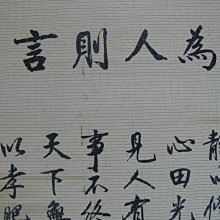 為人則言
靜以修
心田光
見人有
事不終
天下無
以孝服